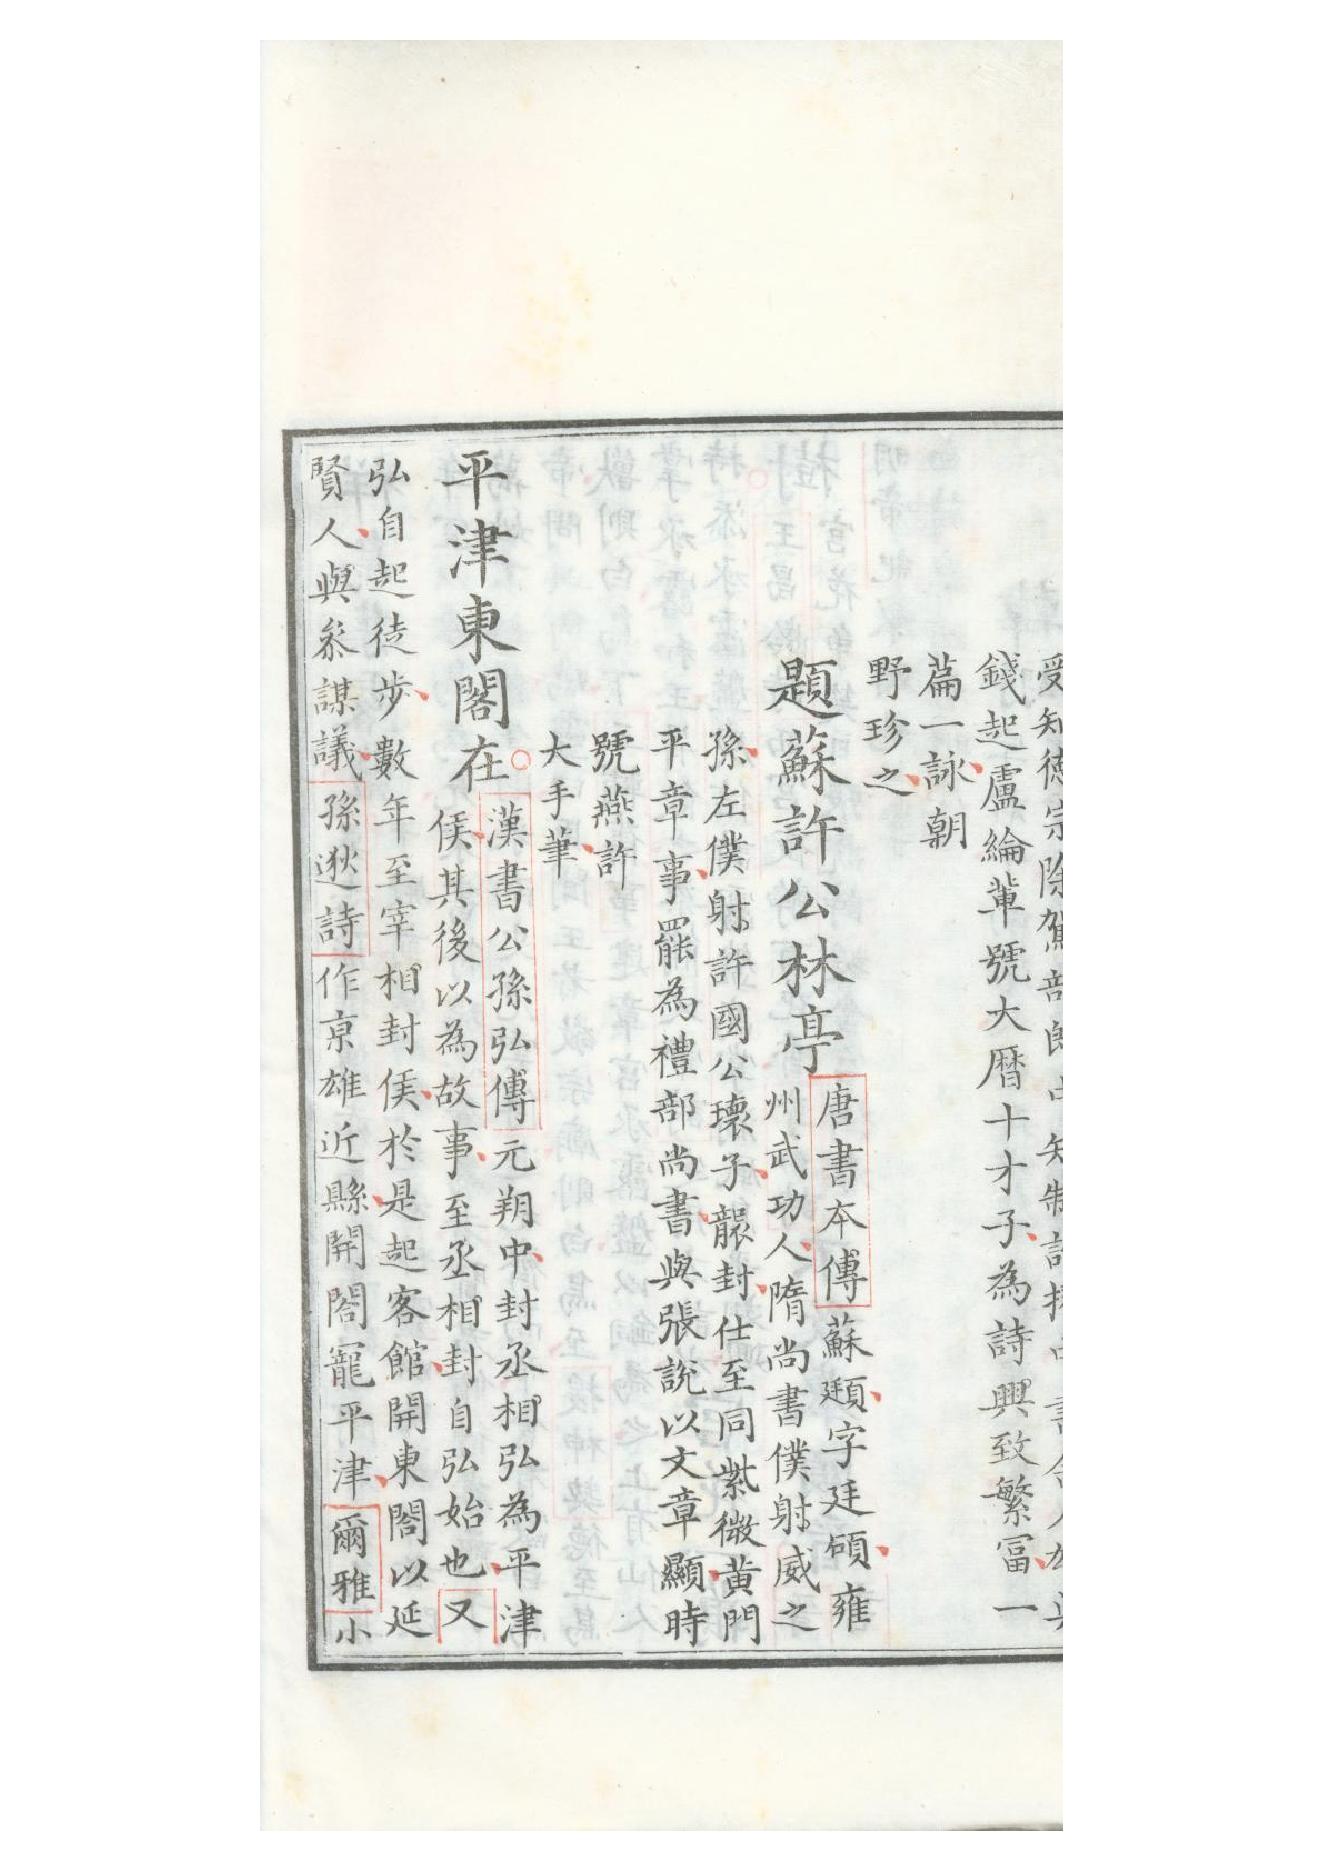 受知德宗除駕部郎中知制誥擢中書舍人
錢起盧綸輩號大曆十才子為詩興致繁冨一
篇一詠朝
野珍之
題蘇許公林亭
唐書本傳蘇頲字廷碩雍
州武功人隋尚書僕射威之
孫左僕射許國公瓌子襲封仕至同紫微黃門
平章事罷為禮部尚書與張說以文章顯時
號燕許
大手筆
平津東閣在
漢書公孫弘傳元朔中封丞相弘為平津
侯其後以為故事至丞相封自弘始也又
弘自起徒步數年至宰相封侯於是起客館開東閣以延
賢人與叅謀議孫逖詩作京雄近縣開閣寵平津爾雅小